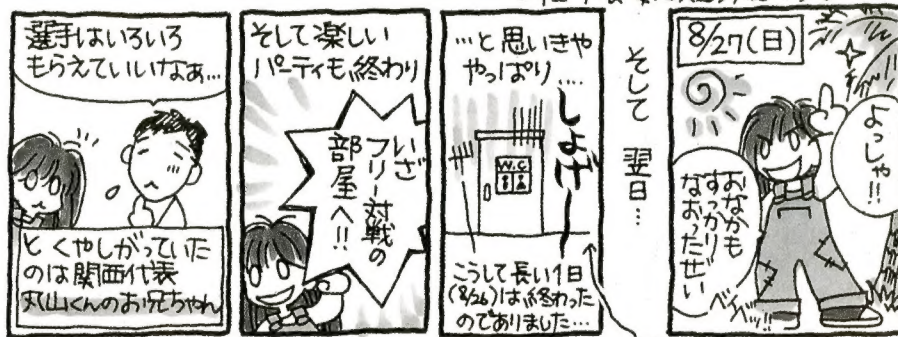 選手はいろいろ
もらえていいなぁ…
とくやしがっていた
のは関西代表
丸山くんのお兄ちゃん
そして楽しい
パーティも終わり
いざ
フリー対戦の
部屋へ!!
…と思いきや
やっぱり…
しょぼー
W.C
こうして長い1日
(8/26)は終わった
のでありました…
そして 翌日…
8/27(日)
よっしゃ!!
おなかも
すっかり
なおったぜい